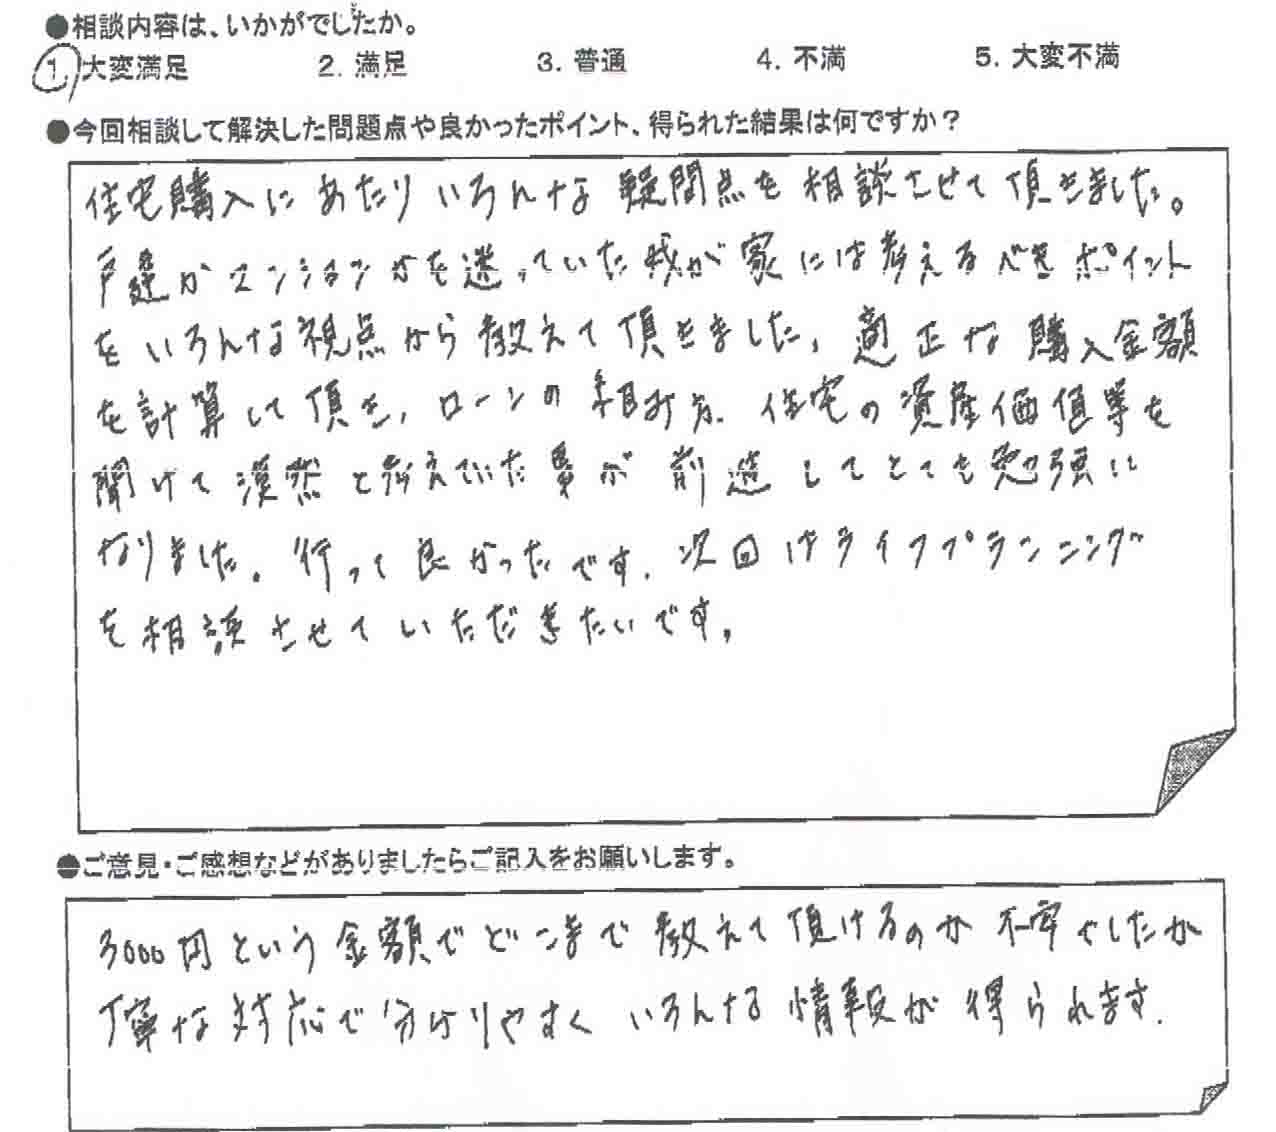 ●相談内容は、いかがでしたか。
1. 大変満足 2. 満足 3. 普通 4. 不満 5. 大変不満
●今回相談して解決した問題点や良かったポイント、得られた結果は何ですか？
住宅購入にあたりいろんな疑問点を相談させて頂きました。
戸建かマンションかを迷っていた我が家には考えるべきポイント
をいろんな視点から教えて頂きました。適正な購入金額
を計算して頂き、ローンの組み方、住宅の資産価値等を
聞けて漠然と考えていた事が前進してとても勉強に
なりました。行って良かったです。次回はライフプランニング
を相談させていただきたいです。
●ご意見・ご感想などがありましたらご記入をお願いします。
3000円という金額でどこまで教えて頂けるのか不安でしたが
丁寧な対応で分かりやすくいろんな情報が得られます。